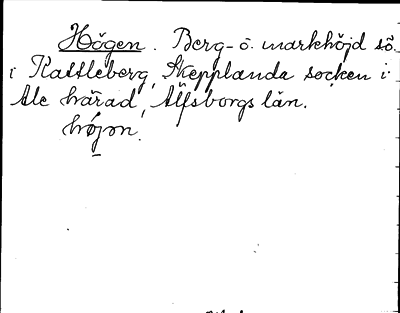 Högen. Berg- o. markhöjd sö.
i Kattleberg, Skepplanda socken i
Ale härad, Älfsborgs län.
hö́jon.